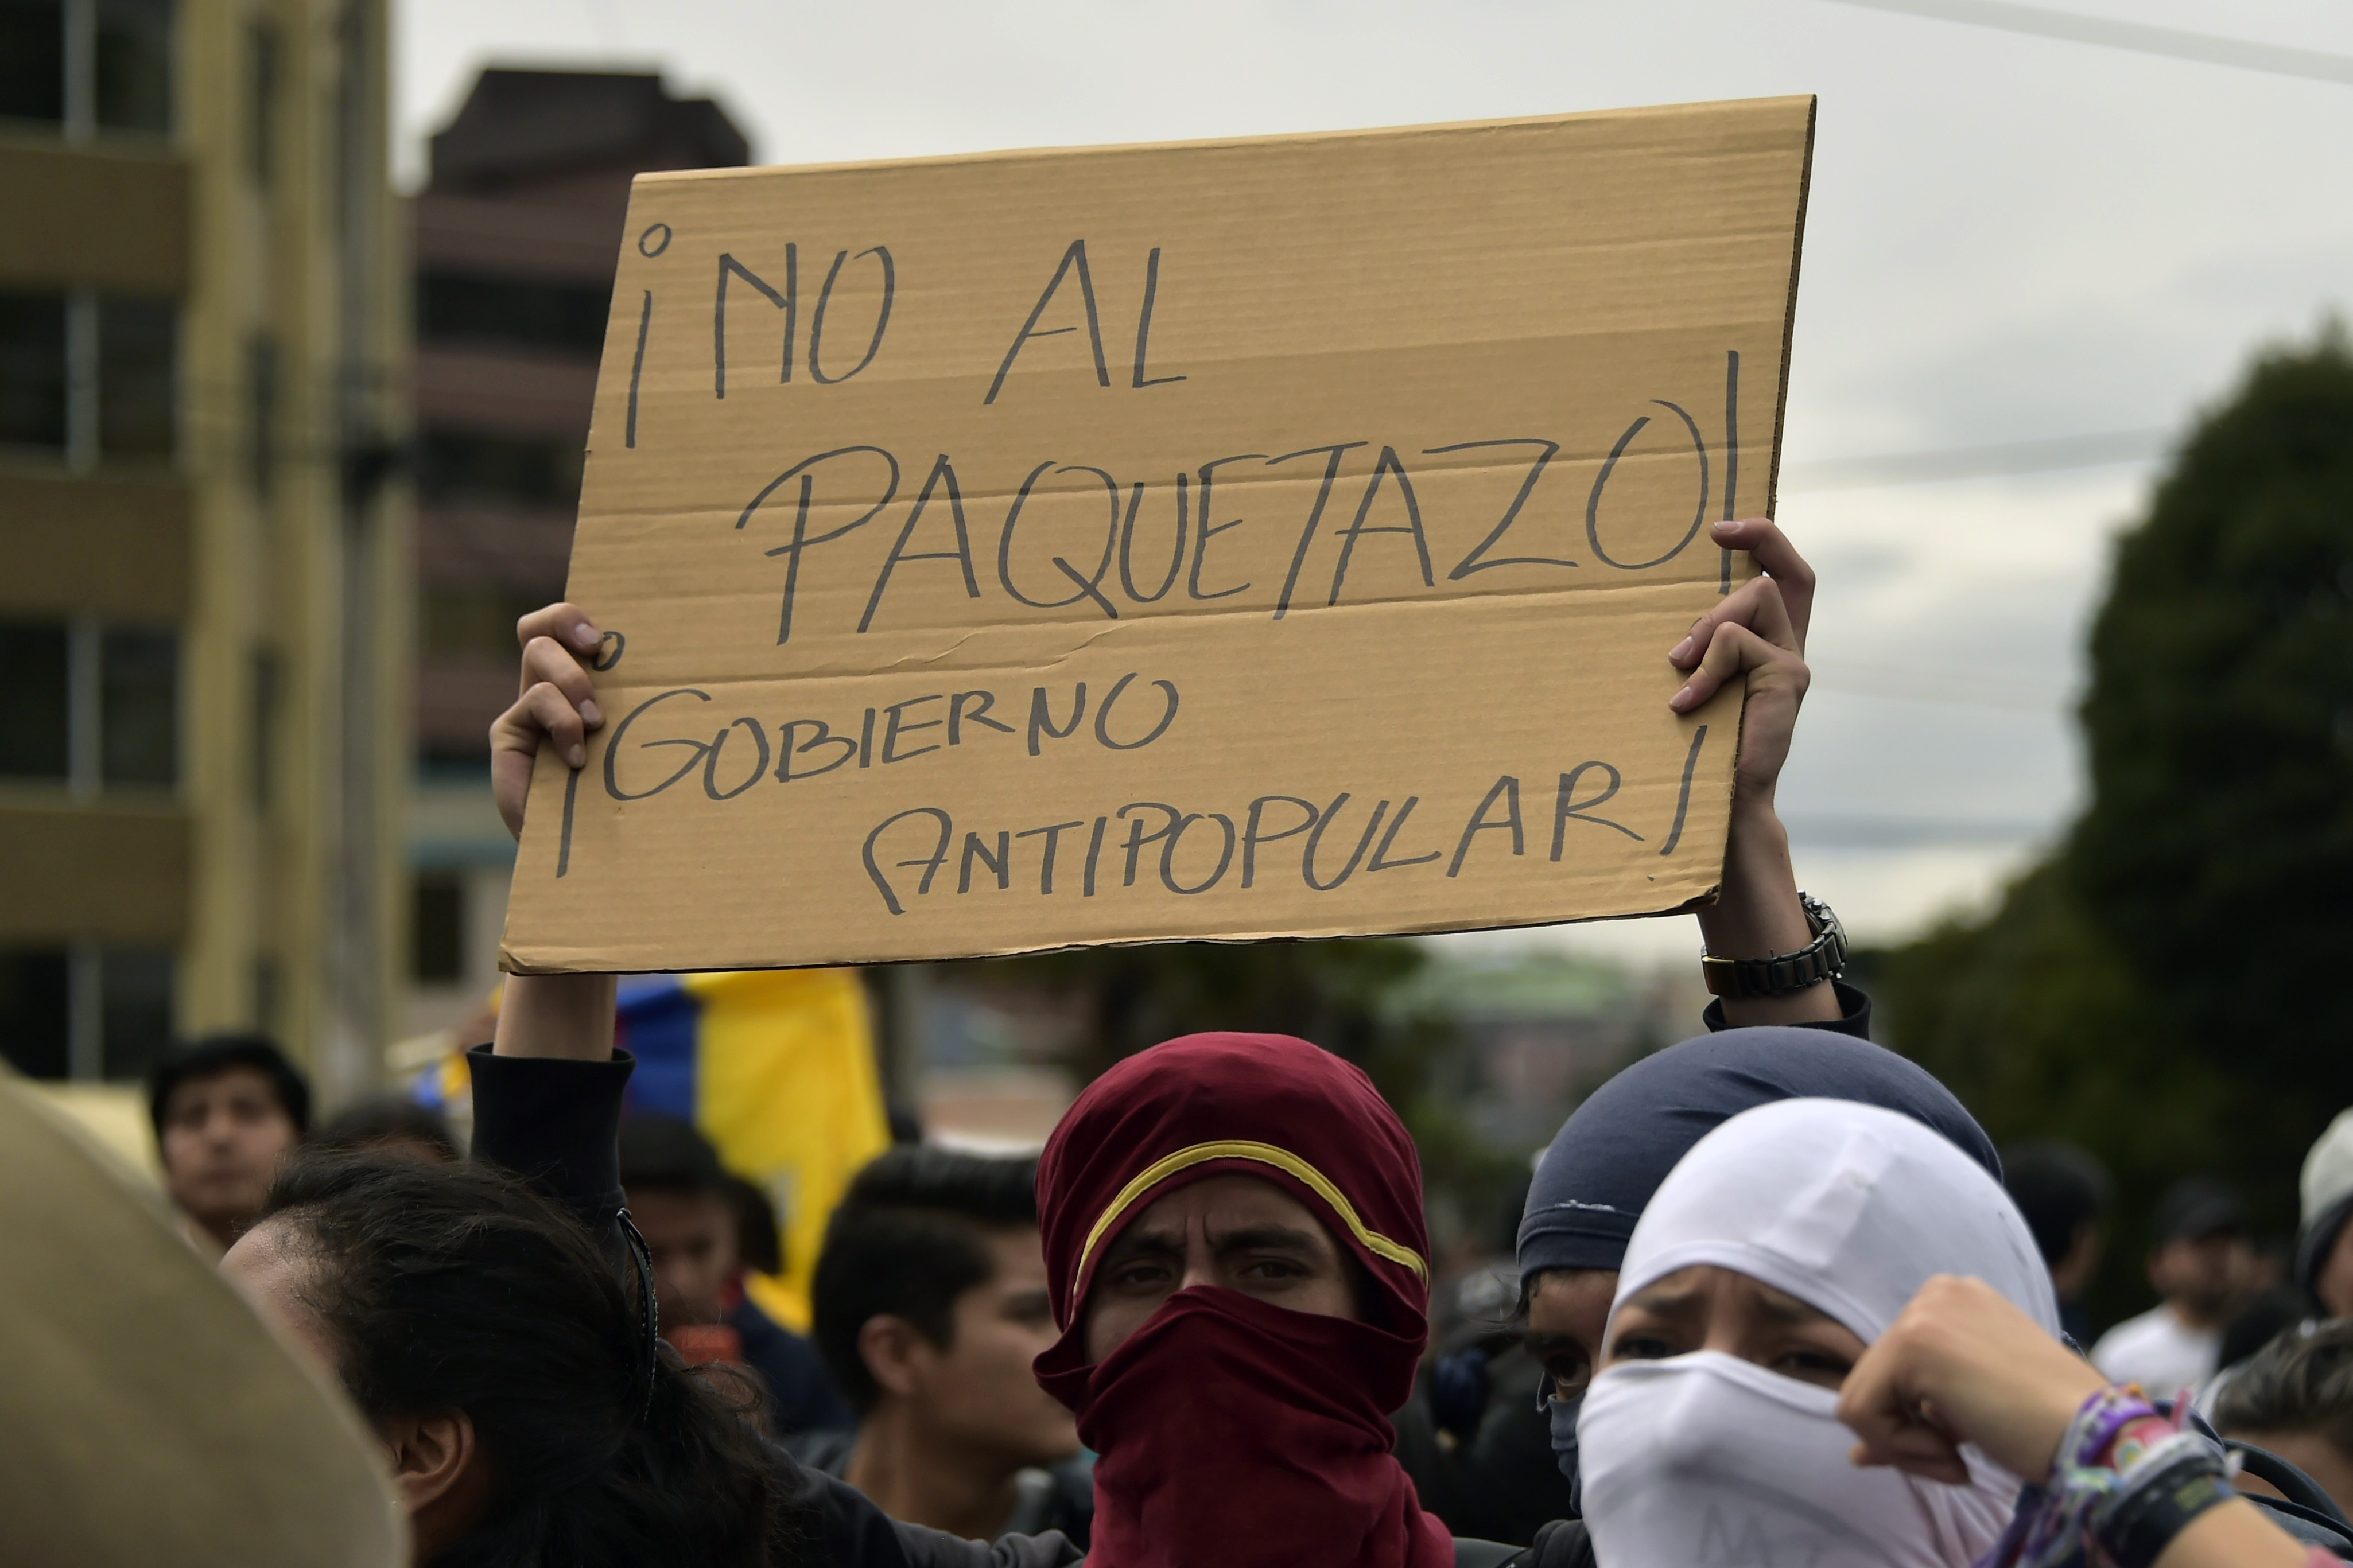 ¡NO AL
PAQUETAZO!
¡GOBIERNO
ANTIPOPULAR!